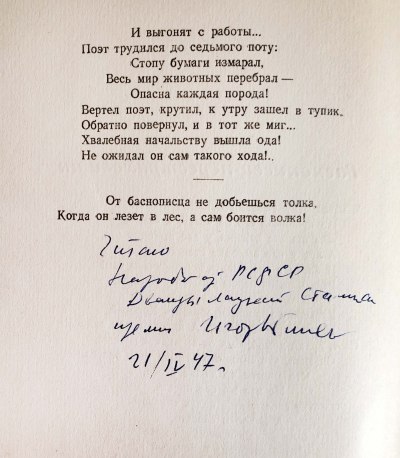 И выгонят с работы...
Поэт трудился до седьмого поту:
Стопу бумаги измарал,
Весь мир животных перебрал —
Опасна каждая порода!
Вертел поэт, крутил, к утру зашел в тупик.
Обратно повернул, и в тот же миг...
Хвалебная начальству вышла ода!
Не ожидал он сам такого хода!..
От баснописца не добьешься толка,
Когда он лезет в лес, а сам боится волка!
Читано
РСФСР
Дважды Лауреат Сталин
премии Игорь
21/IV 47 г.